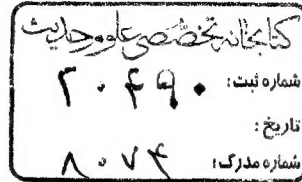 کتابخانه تخصصی علوم حدیث
شماره ثبت:
تاریخ:
شماره مدرک: ۸۰۷۴